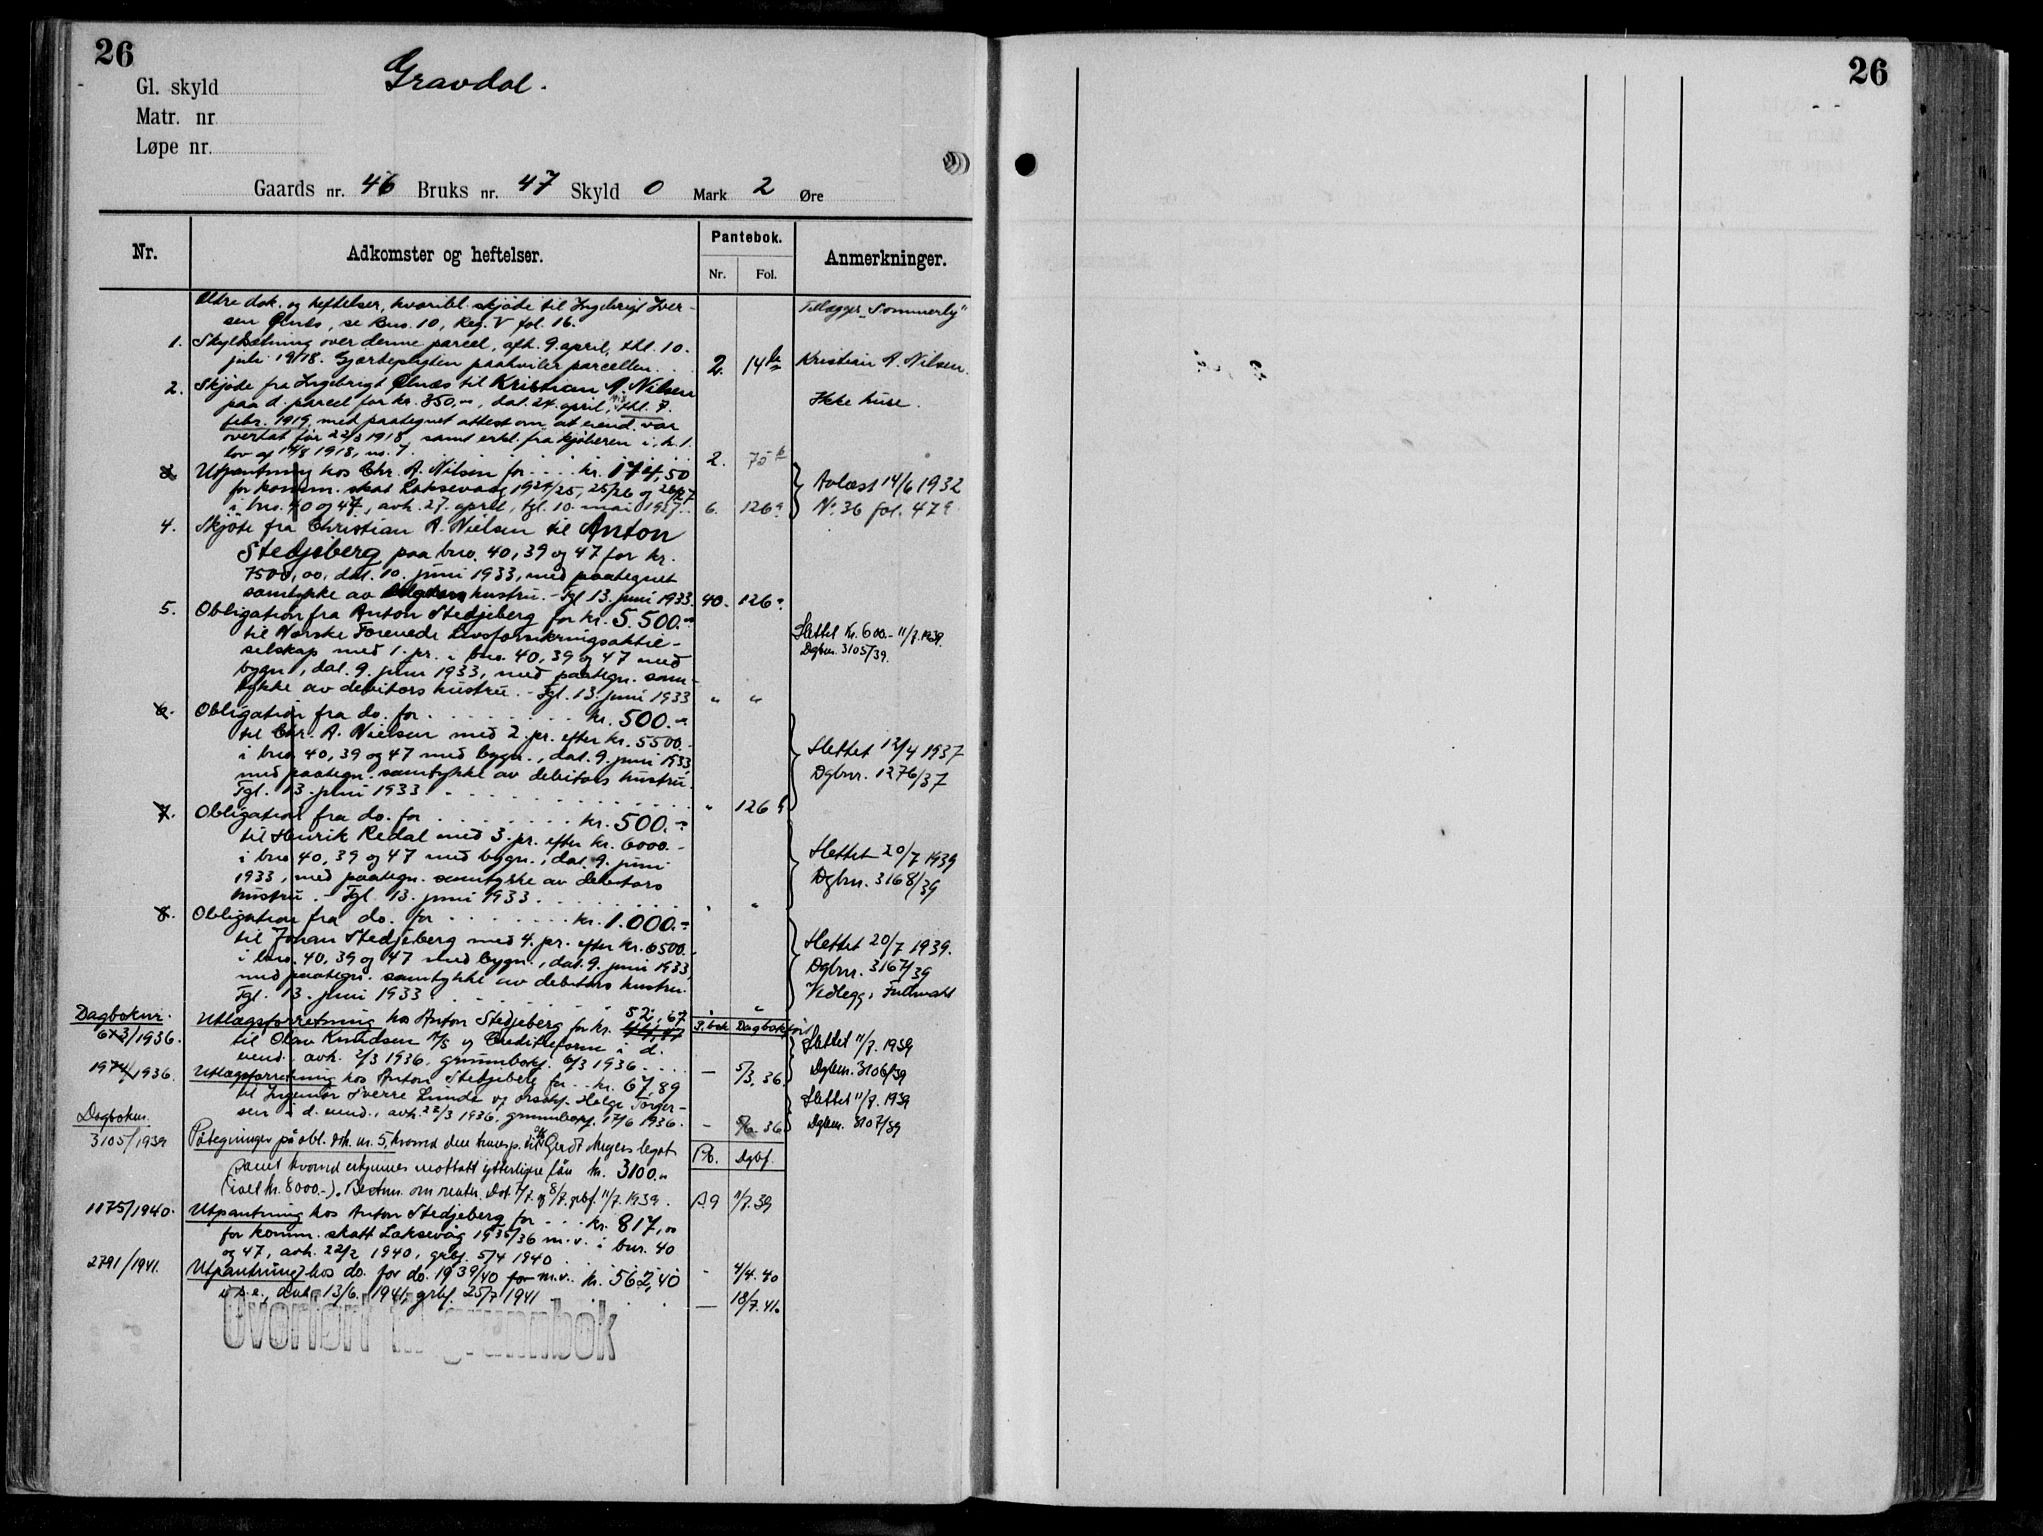 26
Gravdal.
Gl. skyld
Matr. nr.
Løpe nr.
Gaards nr. 46 Bruks nr. 47 Skyld 0 Mark 2 Øre
Nr.
Adkomster og heftelser.
Pantebok.
Nr.
Fol.
Anmerkninger.
Eldre dok. og heftelser, hvoribl. skjøte til Ingebrigt Iver-
sen Ølnes, se Bno. 10, Reg. V fol. 16.
Tillegger "Sommerly"
1. Skyldsetning over denne parcel, afh. 9. april, thl. 10.
juli 1918. Gjærdepligten paahviler parcellen. 2. 14b
Kristian A. Nilsen.
2. Skjøde fra Ingebrigt Ølnæs til Kristian A. Nilsen
paa d. parcel for kr. 350,00, dat. 24. april, thl. 7.
febr. 1919, med paategnet attest om at eiend. var
overtat før 22/3 1918, samt erkl. fra kjøberen i. h. t.
lov af 16/8 1918, no. 7. 2. 75b
Ikke huse.
3. Utpantning hos Chr. A. Nilsen for .... kr. 174,50
for komm. skat Laksevaag 1924/25, 25/26 og 26/27
i bno. 40 og 47, avh. 27. april, tgl. 10. mai 1927. 6. 126a
Avlæst 14/6 1932
No. 36 fol. 479
4. Skjøte fra Christian A. Nielsen til Anton
Stedjeberg paa bno. 40, 39 og 47 for kr.
7500,00, dat. 10. juni 1933, med paategnet
samtykke av hustru. - Tgl. 13. juni 1933. 40. 126a
5. Obligation fra Anton Stedjeberg for kr. 5.500.-
til Norske Forenede Livsforsikringsaktie-
selskap med 1. pr. i bno. 40, 39 og 47 med
bygn., dat. 9. juni 1933, med paategn. sam-
tykke av debitors hustru. - Tgl. 13. juni 1933 " "
Slettet Kr. 600.- 11/7. 1939.
Dgbnr. 3105/39.
6. Obligation fra do. for ........ kr. 500.-
til Chr. A. Nielsen med 2. pr. efter kr. 5500.-
i bno 40, 39 og 47 med bygn., dat. 9. juni 1933,
med paategn. samtykke av debitors hustru.
Tgl. 13. juni 1933 ........ " 126b
Slettet 12/4 1937
Dgbnr. 1276/37
7. Obligation fra do. for ........ kr. 500.-
til Henrik Redal med 3. pr. efter kr. 6000.-
i bno 40, 39 og 47 med bygn., dat. 9. juni
1933, med paategn. samtykke av debitors
hustru. - Tgl. 13. juni 1933 ........ " "
Slettet 20/7 1939
Dgbnr. 3168/39
8. Obligation fra do. for ........ kr. 1.000.-
til Johan Stedjeberg med 4. pr. efter kr. 6500.-
i bno. 40, 39 og 47 med bygn., dat. 9. juni 1933,
med paategn. samtykke av debitors hustru.
Tgl. 13. juni 1933 ........ " "
Slettet 20/7 1939.
Dgbnr. 3167/39
Vedlegg: Fullmakt
Dagboknr.
673/1936.
Utlægsforretning hos Anton Stedjeberg for kr. 52,67
til Olav Knudsen A/S og Creditreform i d.
eiend., avh. 2/3 1936, grunnbokf. 6/3 1936 .... — 5/3. 36.
P. bok Dagbokført
Slettet 11/7. 1939
Dgbnr. 3106/39
1974/1936.
Utlægsforretning hos Anton Stedjeberg for .. kr. 67,89
til Ingeniør Sverre Lunde og Helge Torger-
sen i d. eiend., avh. 22/3 1936, grunnbokf. 17/6 1936. - 5/6. 36
Slettet 11/7. 1939
Dgbnr. 3107/39
Dagboknr.
3105/1939
Påtegninger på obl. dok. nr. 5, hvorved den transp. til Gerdt Meyers legat
samt hvorved erkjennes mottatt ytterligere lån kr. 3100.-
(ialt kr. 8000.-). Bestem. om renter. Dat. 7/7. og 8/7. grbf. 11/7. 1939. A.9 11/7. 39
Pb. Dgbf.
1175/1940.
Utpantning hos Anton Stedjeberg for ... kr. 817,00
for komm. skatt Laksevåg 1935/36 m. v. i bnr. 40
og 47, avh. 22/2 1940, grbf. 5/4 1940 . . - 4/4. 40
2791/1941.
Utpantning hos do. for do. 1939/40 m.v. kr. 562,40
i s. e., avh. 13/6. 1941, grbf. 25/7 1941 — 18/7. 41.
Overført til grunnbok
26